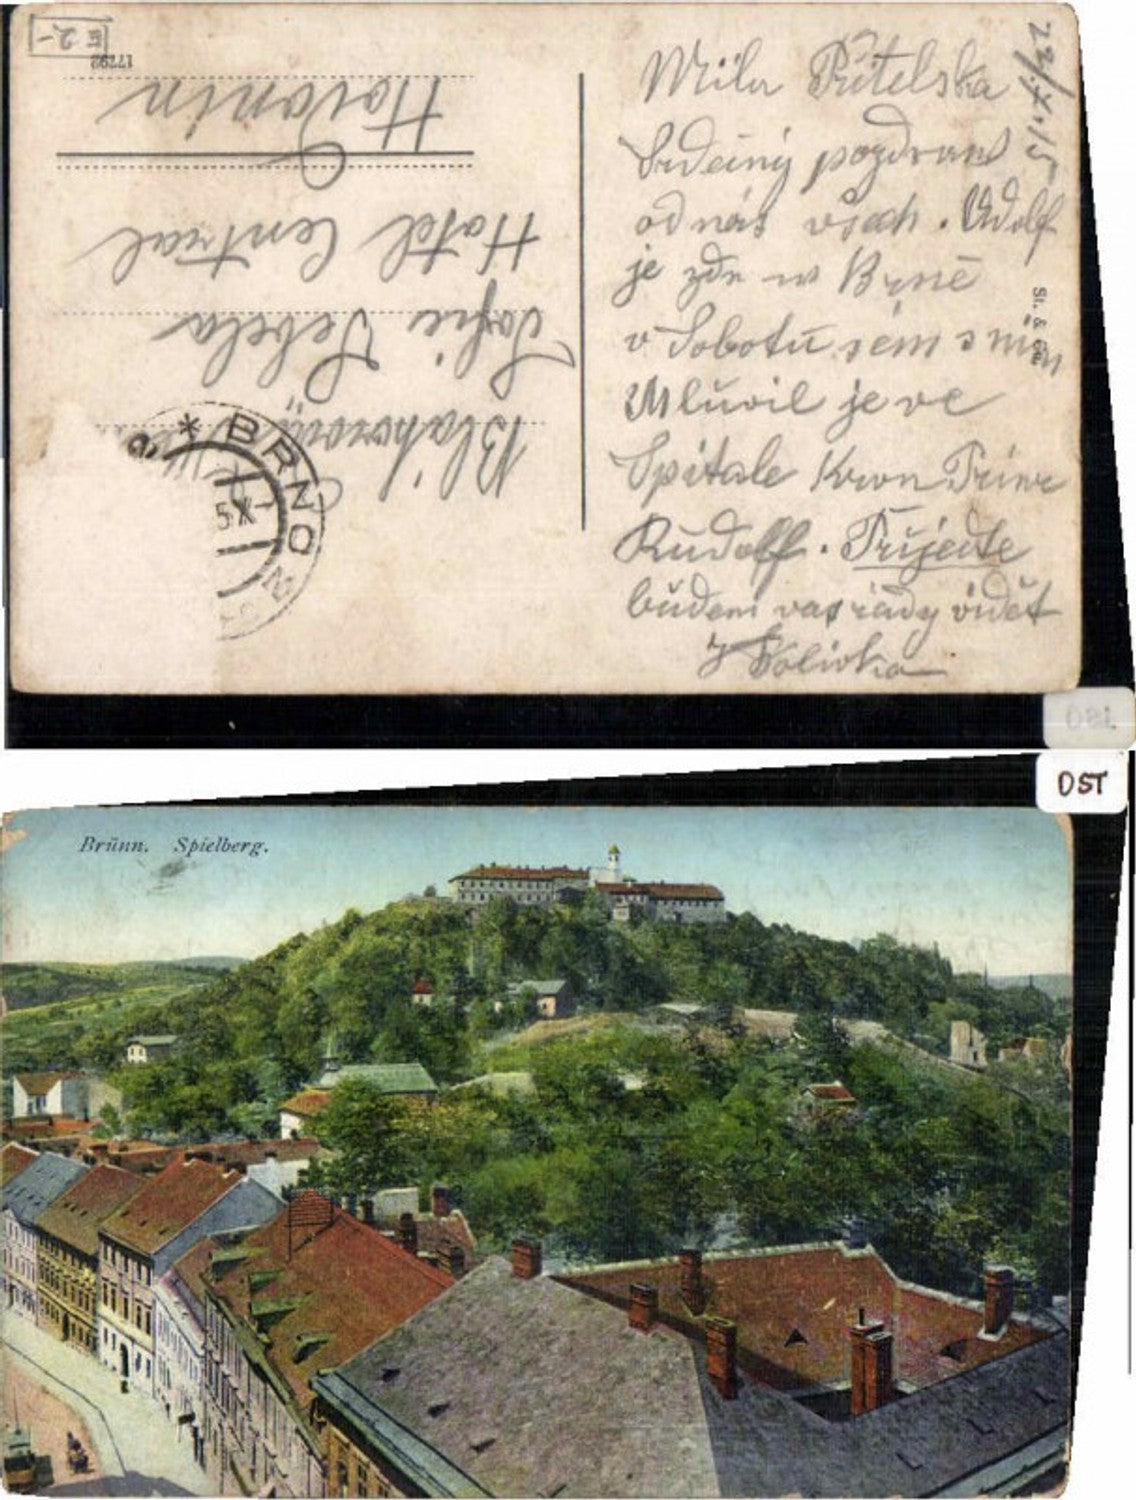 E 2.-
17792
Milá Přítelska
Srdečný pozdrav
od nás všech. Adolf
je zde w Brně
v Sobotu sem s ním
Mluvil je ve
Spitale Kron Prinz
Rudolff. Přijedte
budem vas rádi vidět
Kolivka
29/X.15
St. &
Blahorodý
Sofie Sebela
Hotel Central
Hodonín
* BRNO
5 X
OST
Brünn. Spielberg.